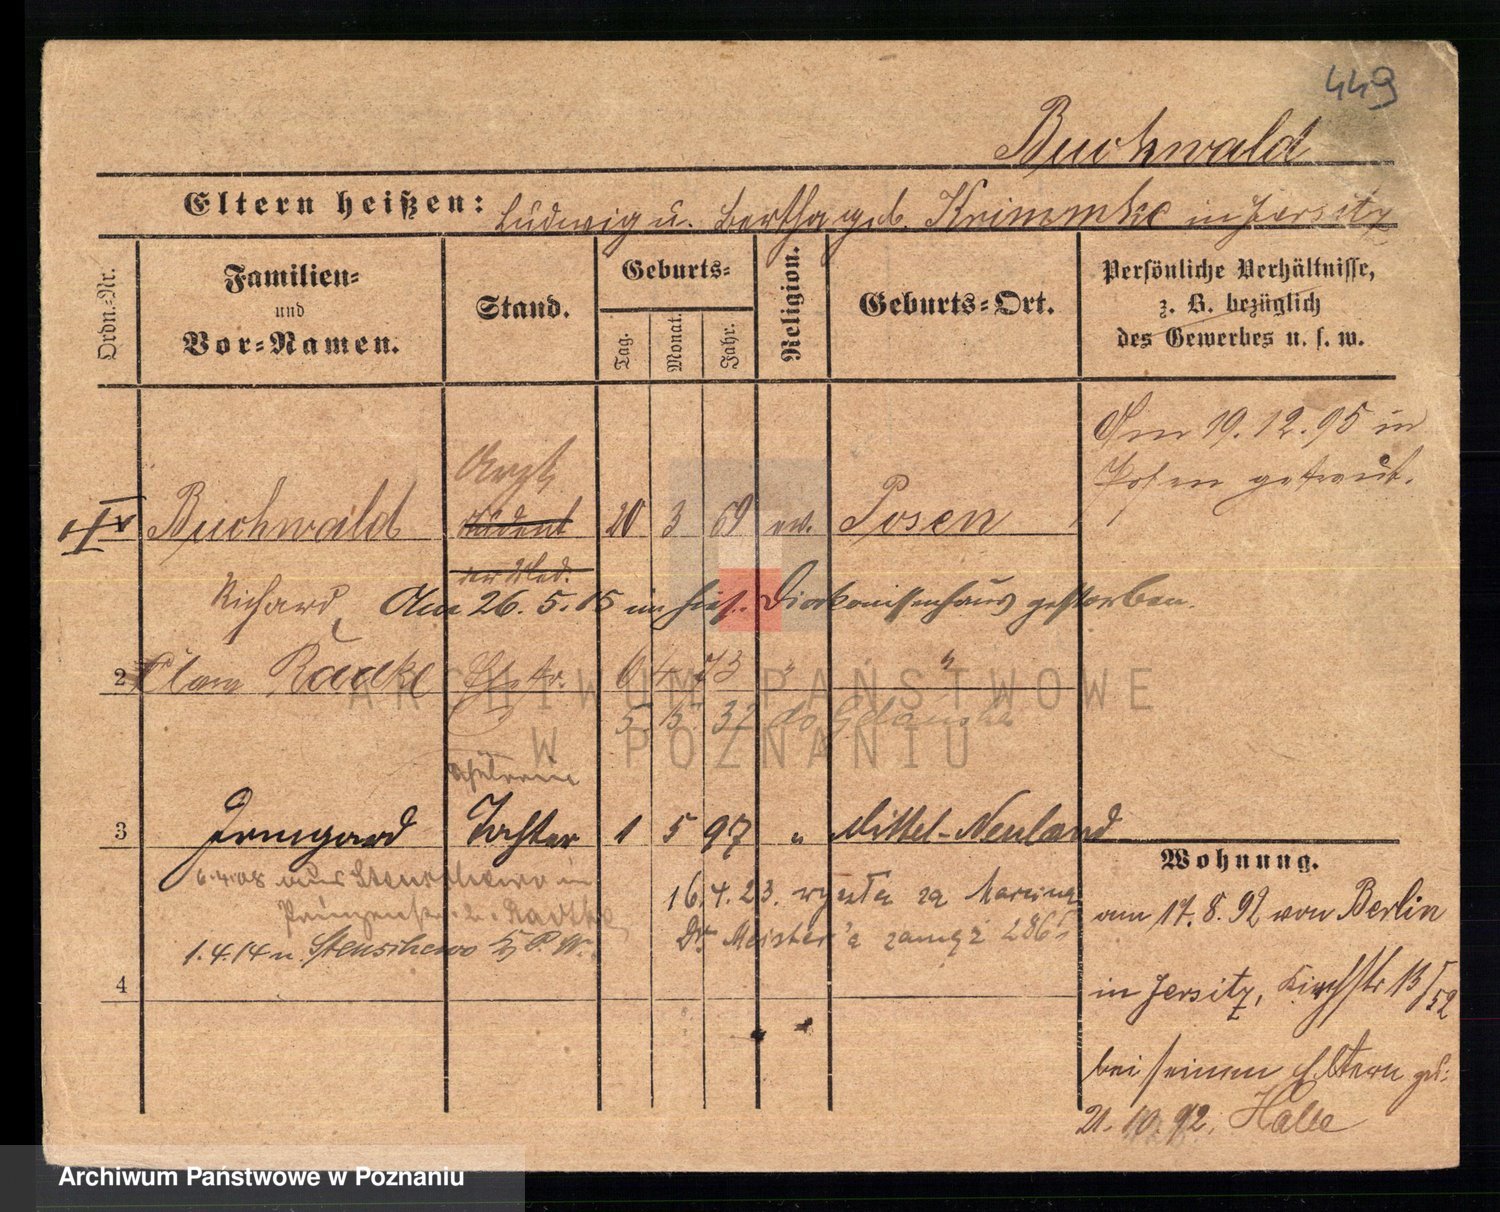 449
Buchwald
Eltern heißen: Ludwig u. Bertha geb. Krimmke in Jersitz
Ordn.-Nr.
Familien-
und
Vor-Namen.
Stand.
Geburts-
Tag.
Monat.
Jahr.
Religion.
Geburts-Ort.
Persönliche Verhältnisse,
z. B. bezüglich
des Gewerbes u. s. w.
Am 19.12.95 in
Posen getraut.
Arzt
Buchwald Student 20 3 69 ev. Posen
der Med.
Richard, Am 26.5.15 im hies. Diakonissenhaus gestorben.
2 Clara Radke Ehefr. 6 4 73 " "
5 5 32 do Gdańska
3 Irmgard Tochter 1 5 97 " Mittel-Neuland
6.4.08 aus
1.4.14 n. Stenschewo Kr. P. W.
16.4.23. wyszła za
Dr. Meister'a zamąż
4
Wohnung.
am 17.8.92 von Berlin
in Jersitz, Kirchstr 13/52
bei seinen Eltern zu:
21.10.92. Halle
ARCHIWUM PAŃSTWOWE
W POZNANIU
Archiwum Państwowe w Poznaniu